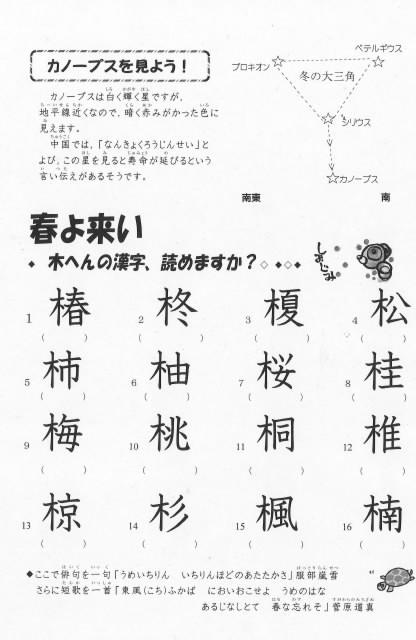 カノープスを見よう！
カノープスは白く輝く星ですが、
地平線近くなので、暗く赤みがかった色に
見えます。
中国では、「なんきょくろうじんせい」と
よび、この星を見ると寿命が延びるという
言い伝えがあるそうです。
ベテルギウス
プロキオン
冬の大三角
シリウス
カノープス
南東
南
春よ来い
木へんの漢字、読めますか？
1 椿
( )
2 柊
( )
3 榎
( )
4 松
( )
5 柿
( )
6 柚
( )
7 桜
( )
8 桂
( )
9 梅
( )
10 桃
( )
11 桐
( )
12 椎
( )
13 椋
( )
14 杉
( )
15 楓
( )
16 楠
( )
◆ここで俳句を一句「うめいちりん いちりんほどのあたたかさ」服部嵐雪
さらに短歌を一首「東風(こち)ふかば においおこせよ うめのはな
あるじなしとて 春な忘れそ」菅原道真